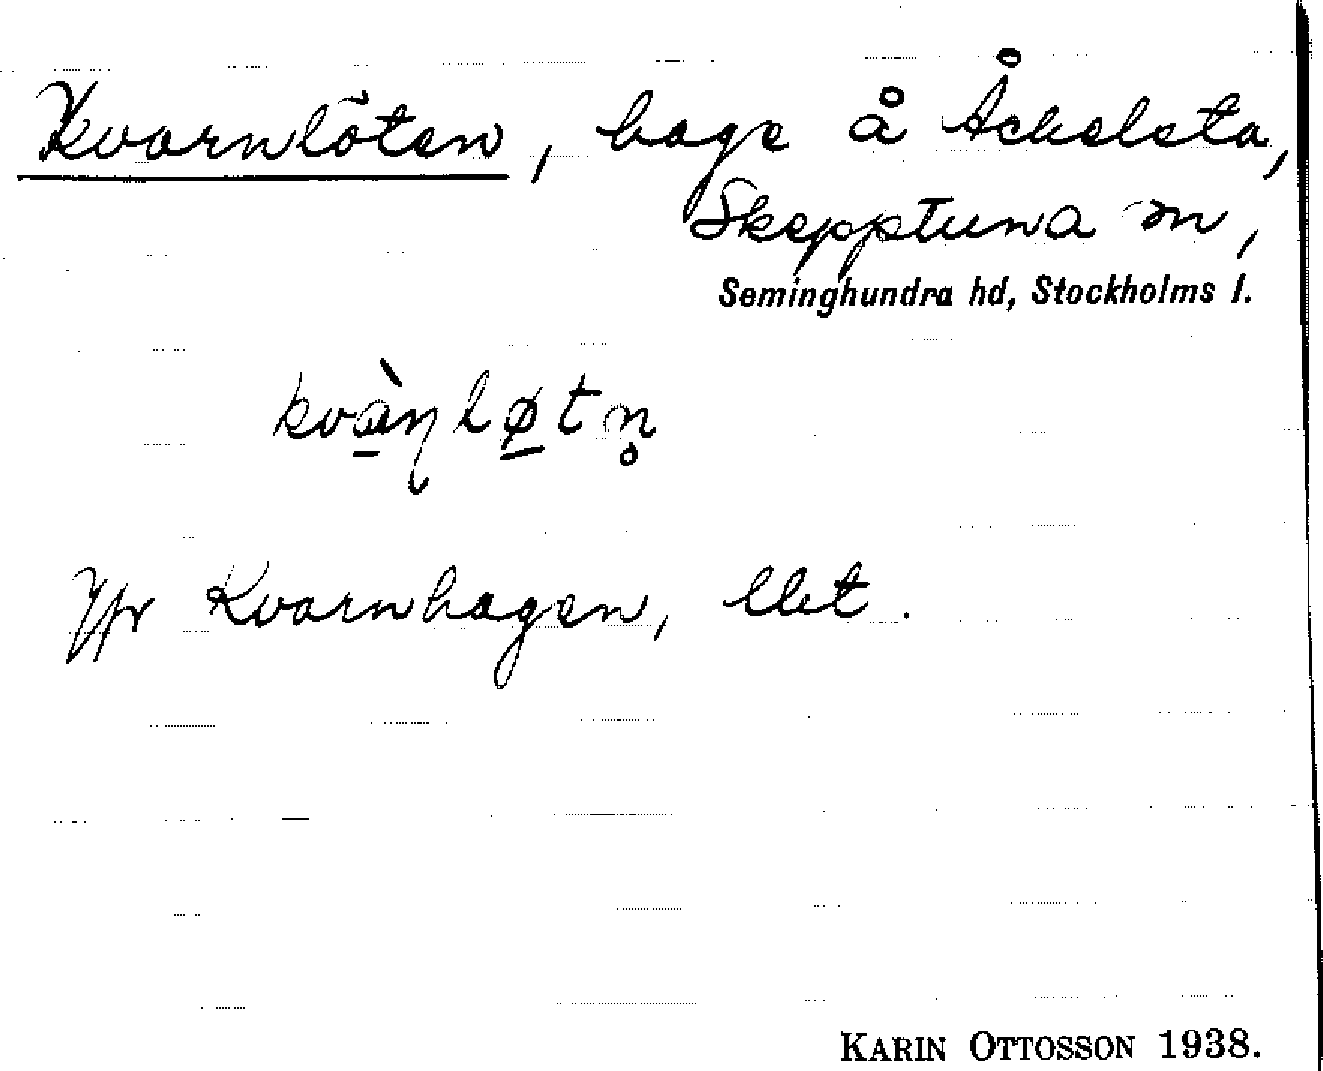 Kvarnlöten, hage å Åckelsta,
Skepptuna sn,
Seminghundra hd, Stockholms l.
kvà̱ɳlø̱tn̥
Jfr Kvarnhagen,
KARIN OTTOSSON 1938.